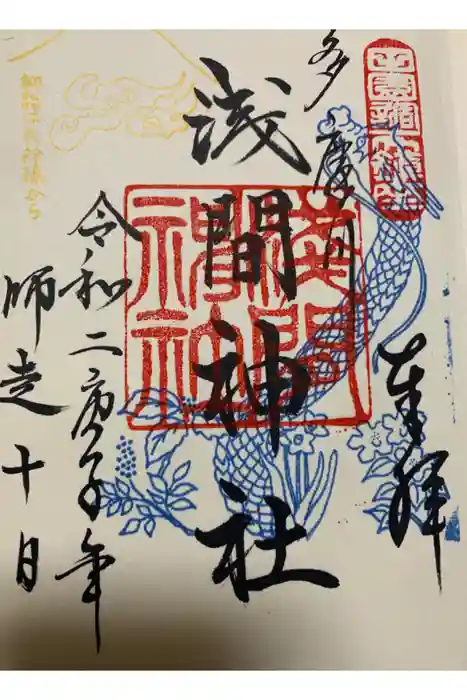 奉拝
多摩川
浅間神社
令和二庚子年
師走十日